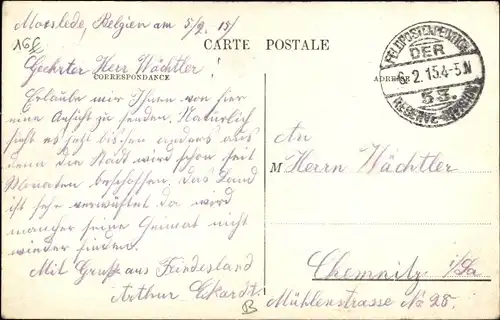 Moorslede, Belgien am 5/2 15/
166
CARTE POSTALE
Geehrter Herr Wächtler!
CORRESPONDANCE
ADRESSE
Erlaube mir Ihnen von hier
eine Ansicht zu senden. Natürlich
sieht es jetzt bischen anders aus
denn die Stadt wird schon seit
Monaten beschossen. Das Land
ist sehr verwüstet da word
mancher seine Heimat nicht
wieder finden.
Mit Gruß aus Feindesland
Arthur Eckardt.
B
FELDPOSTEXPEDITION
DER
6.2.15.4-5.N
53.
RESERVE-DIVISION
An
M Herrn Wächtler
Chemnitz i/Sa
Mühlenstrasse No 28.